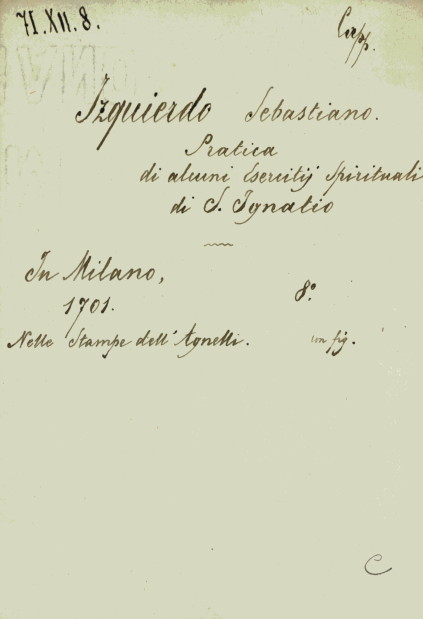 71.XII.8.
Capp.
Izquierdo Sebastiano.
Pratica
di alcuni Esercitij Spirituali
di S. Ignatio
In Milano,
1701.
8.°
Nelle Stampe dell'Agnelli.
con fig.
C